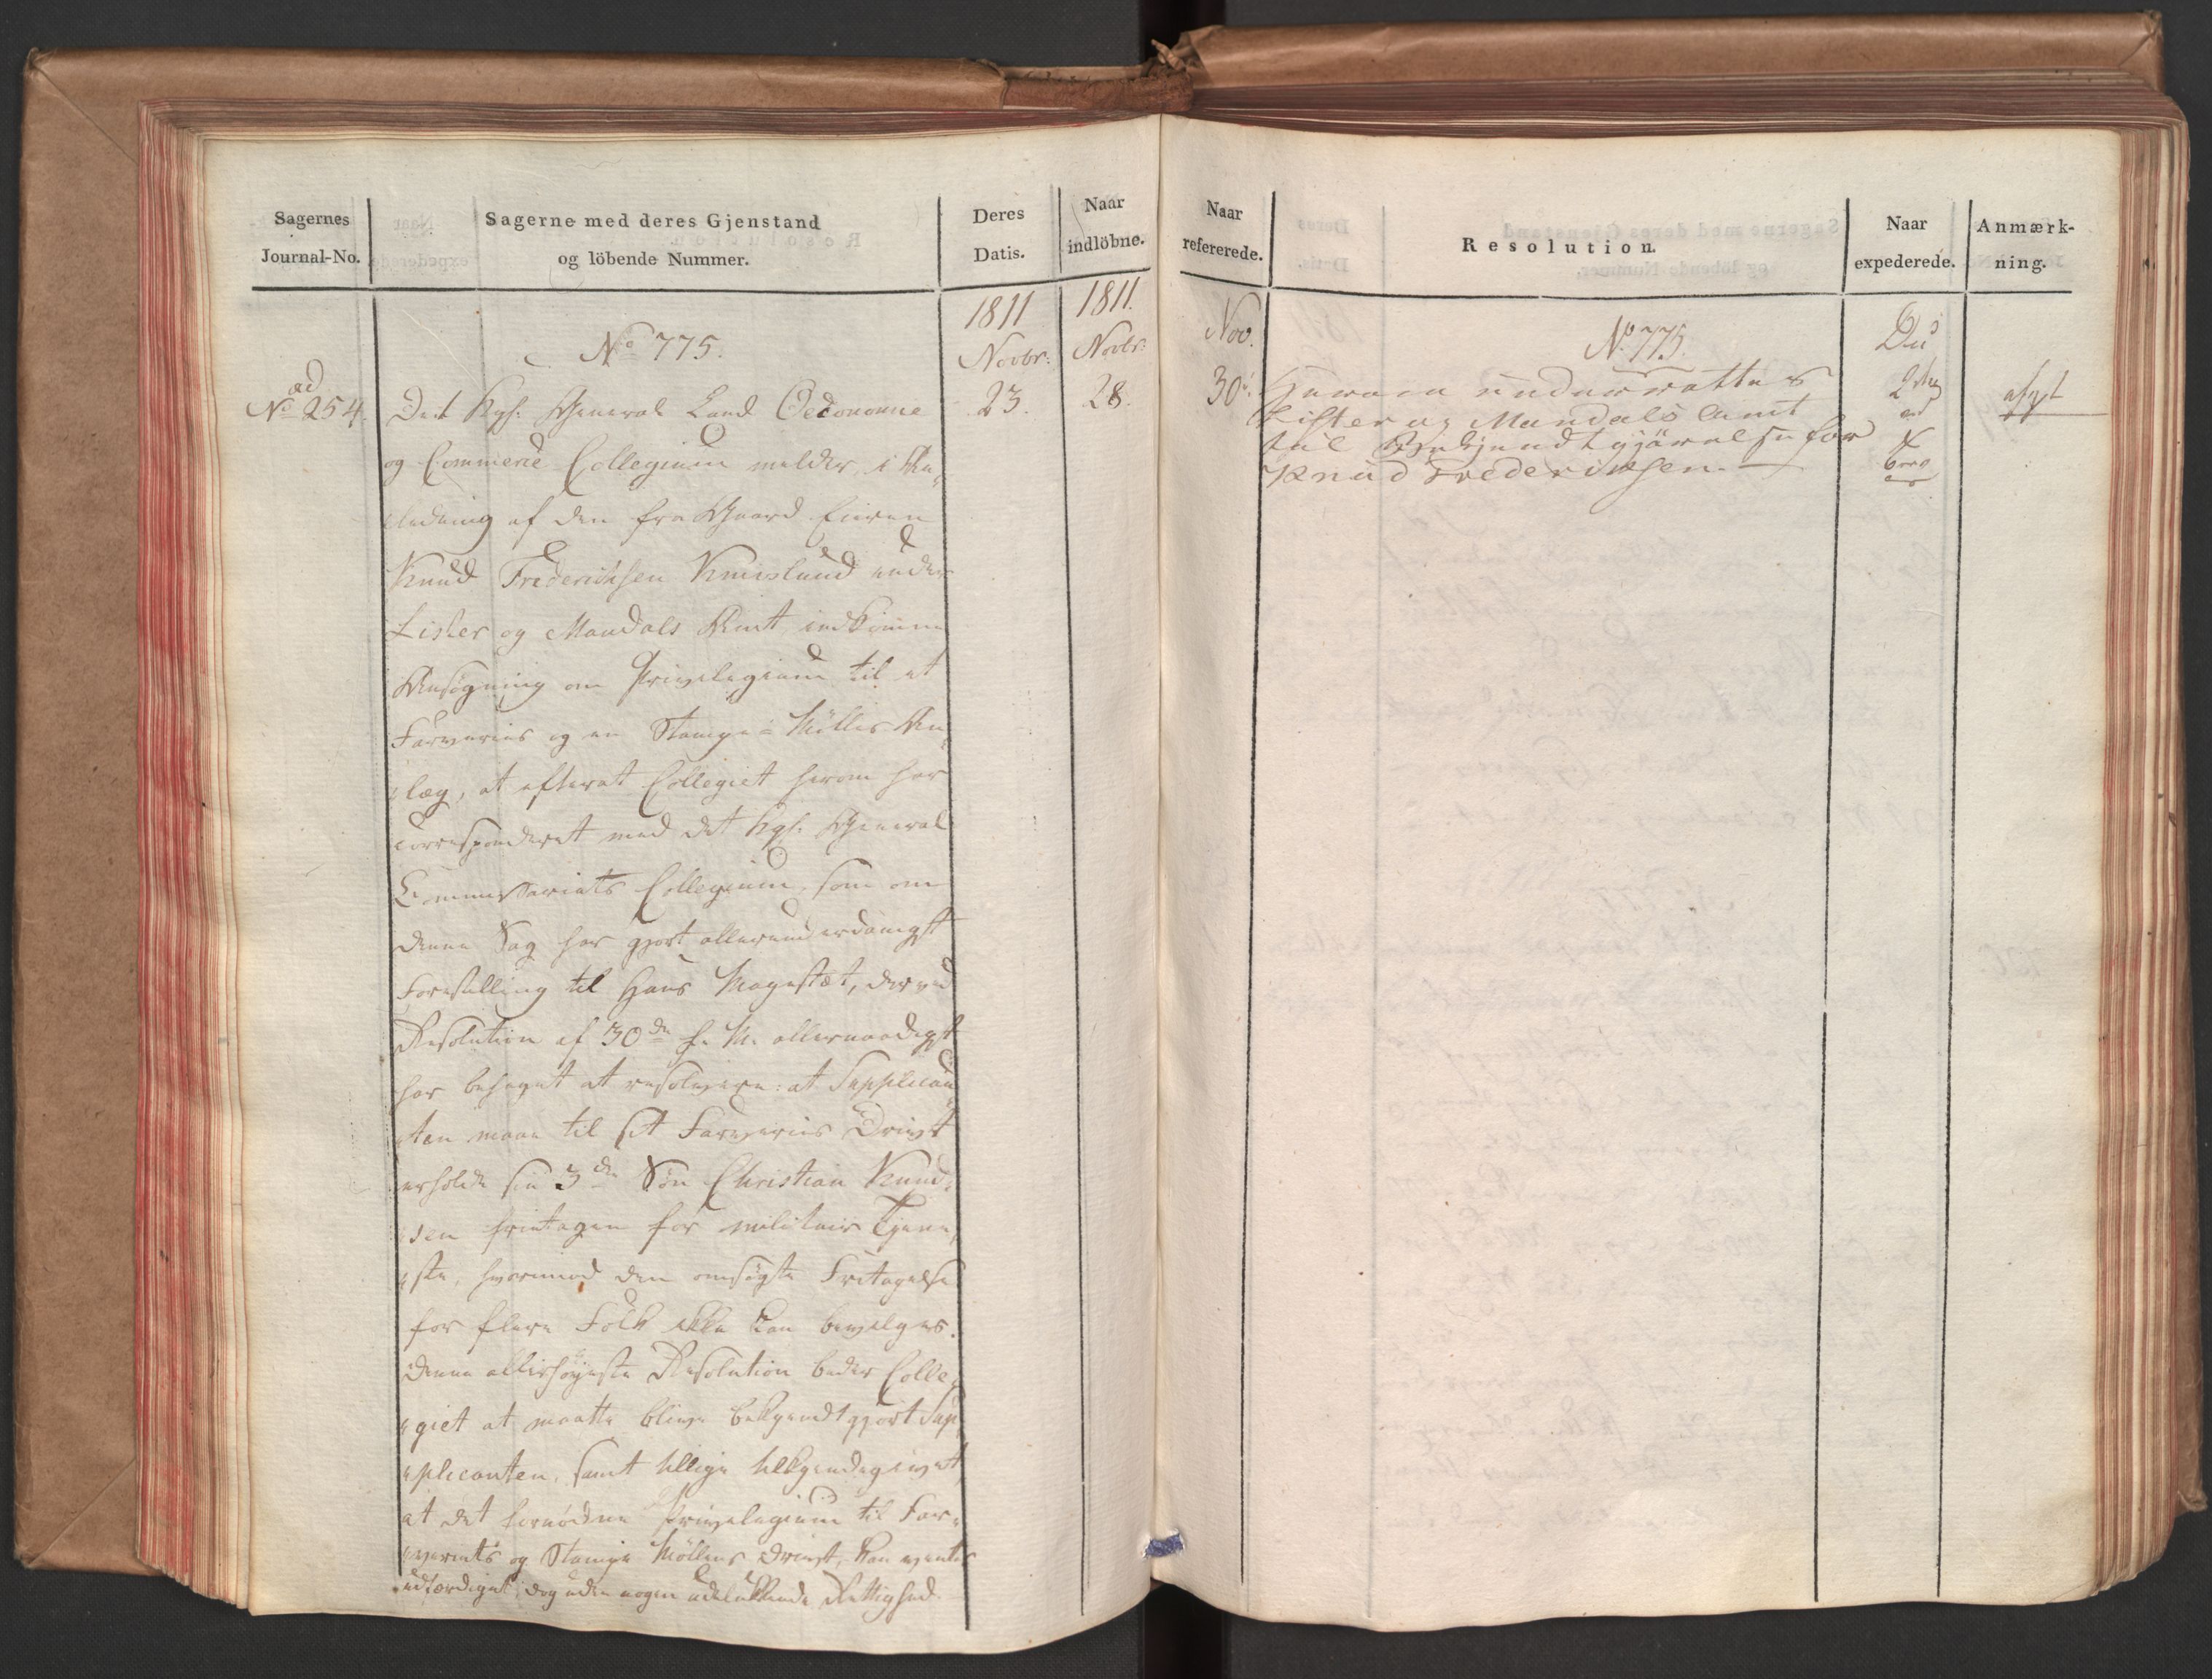 Sagernes
Journal-No.
Sagerne med deres Gjenstand
og löbende Nummer.
Deres
Datis.
Naar
indlöbne.
Naar
refererede.
Resolution.
Naar
expederede.
Anmærk-
ning.
1811
1811.
No 775.
Novbr:
Novbr:
ad
No 254.
23.
28.
Det Kgl. General Land Oeconomie
og Commerce Collegium melder, i An„
„ledning af den fra Gaard Eieren
Knud Frederichsen under
Lister og Mandals Amt indkomne
Ansøgning om Privilegium til et
Farveries og en Stampe-Mølles An„
„læg, at efterat Collegiet herom har
correspondert med det Kgl. General
Commissariats Collegium, som om
denne Sag har gjort allerunderdanigst
Forestilling til Hans Majestæt, der ved
Resolution af 30de f. M. allernaadigst
har behaget at resolvere: at Supplican„
„ten maae til sit Farveries Drivt
erholde sin 3de Søn Christian Knud„
„sen fritagen for militair Tjene„
„ste, hvorimod den ansøgte Fritagelse
for flere Folk ikke kan bevilges.
Denne allerhøyeste Resolution beder Colle„
„giet at maatte blive bekjendtgjort Sup„
„plicanten, samt tillige tilkjendegivet,
at det fornødne Privilegium til Far„
„veriets og Stampe Møllens Drivt, kan ventes
udfærdiget, dog uden nogen udelukkende Rettighed.
Nov.
30
No 775.
Herom underrettes
Lister og Mandals Amt
til Bekjendtgjörelse for
Knud Frederichsen.